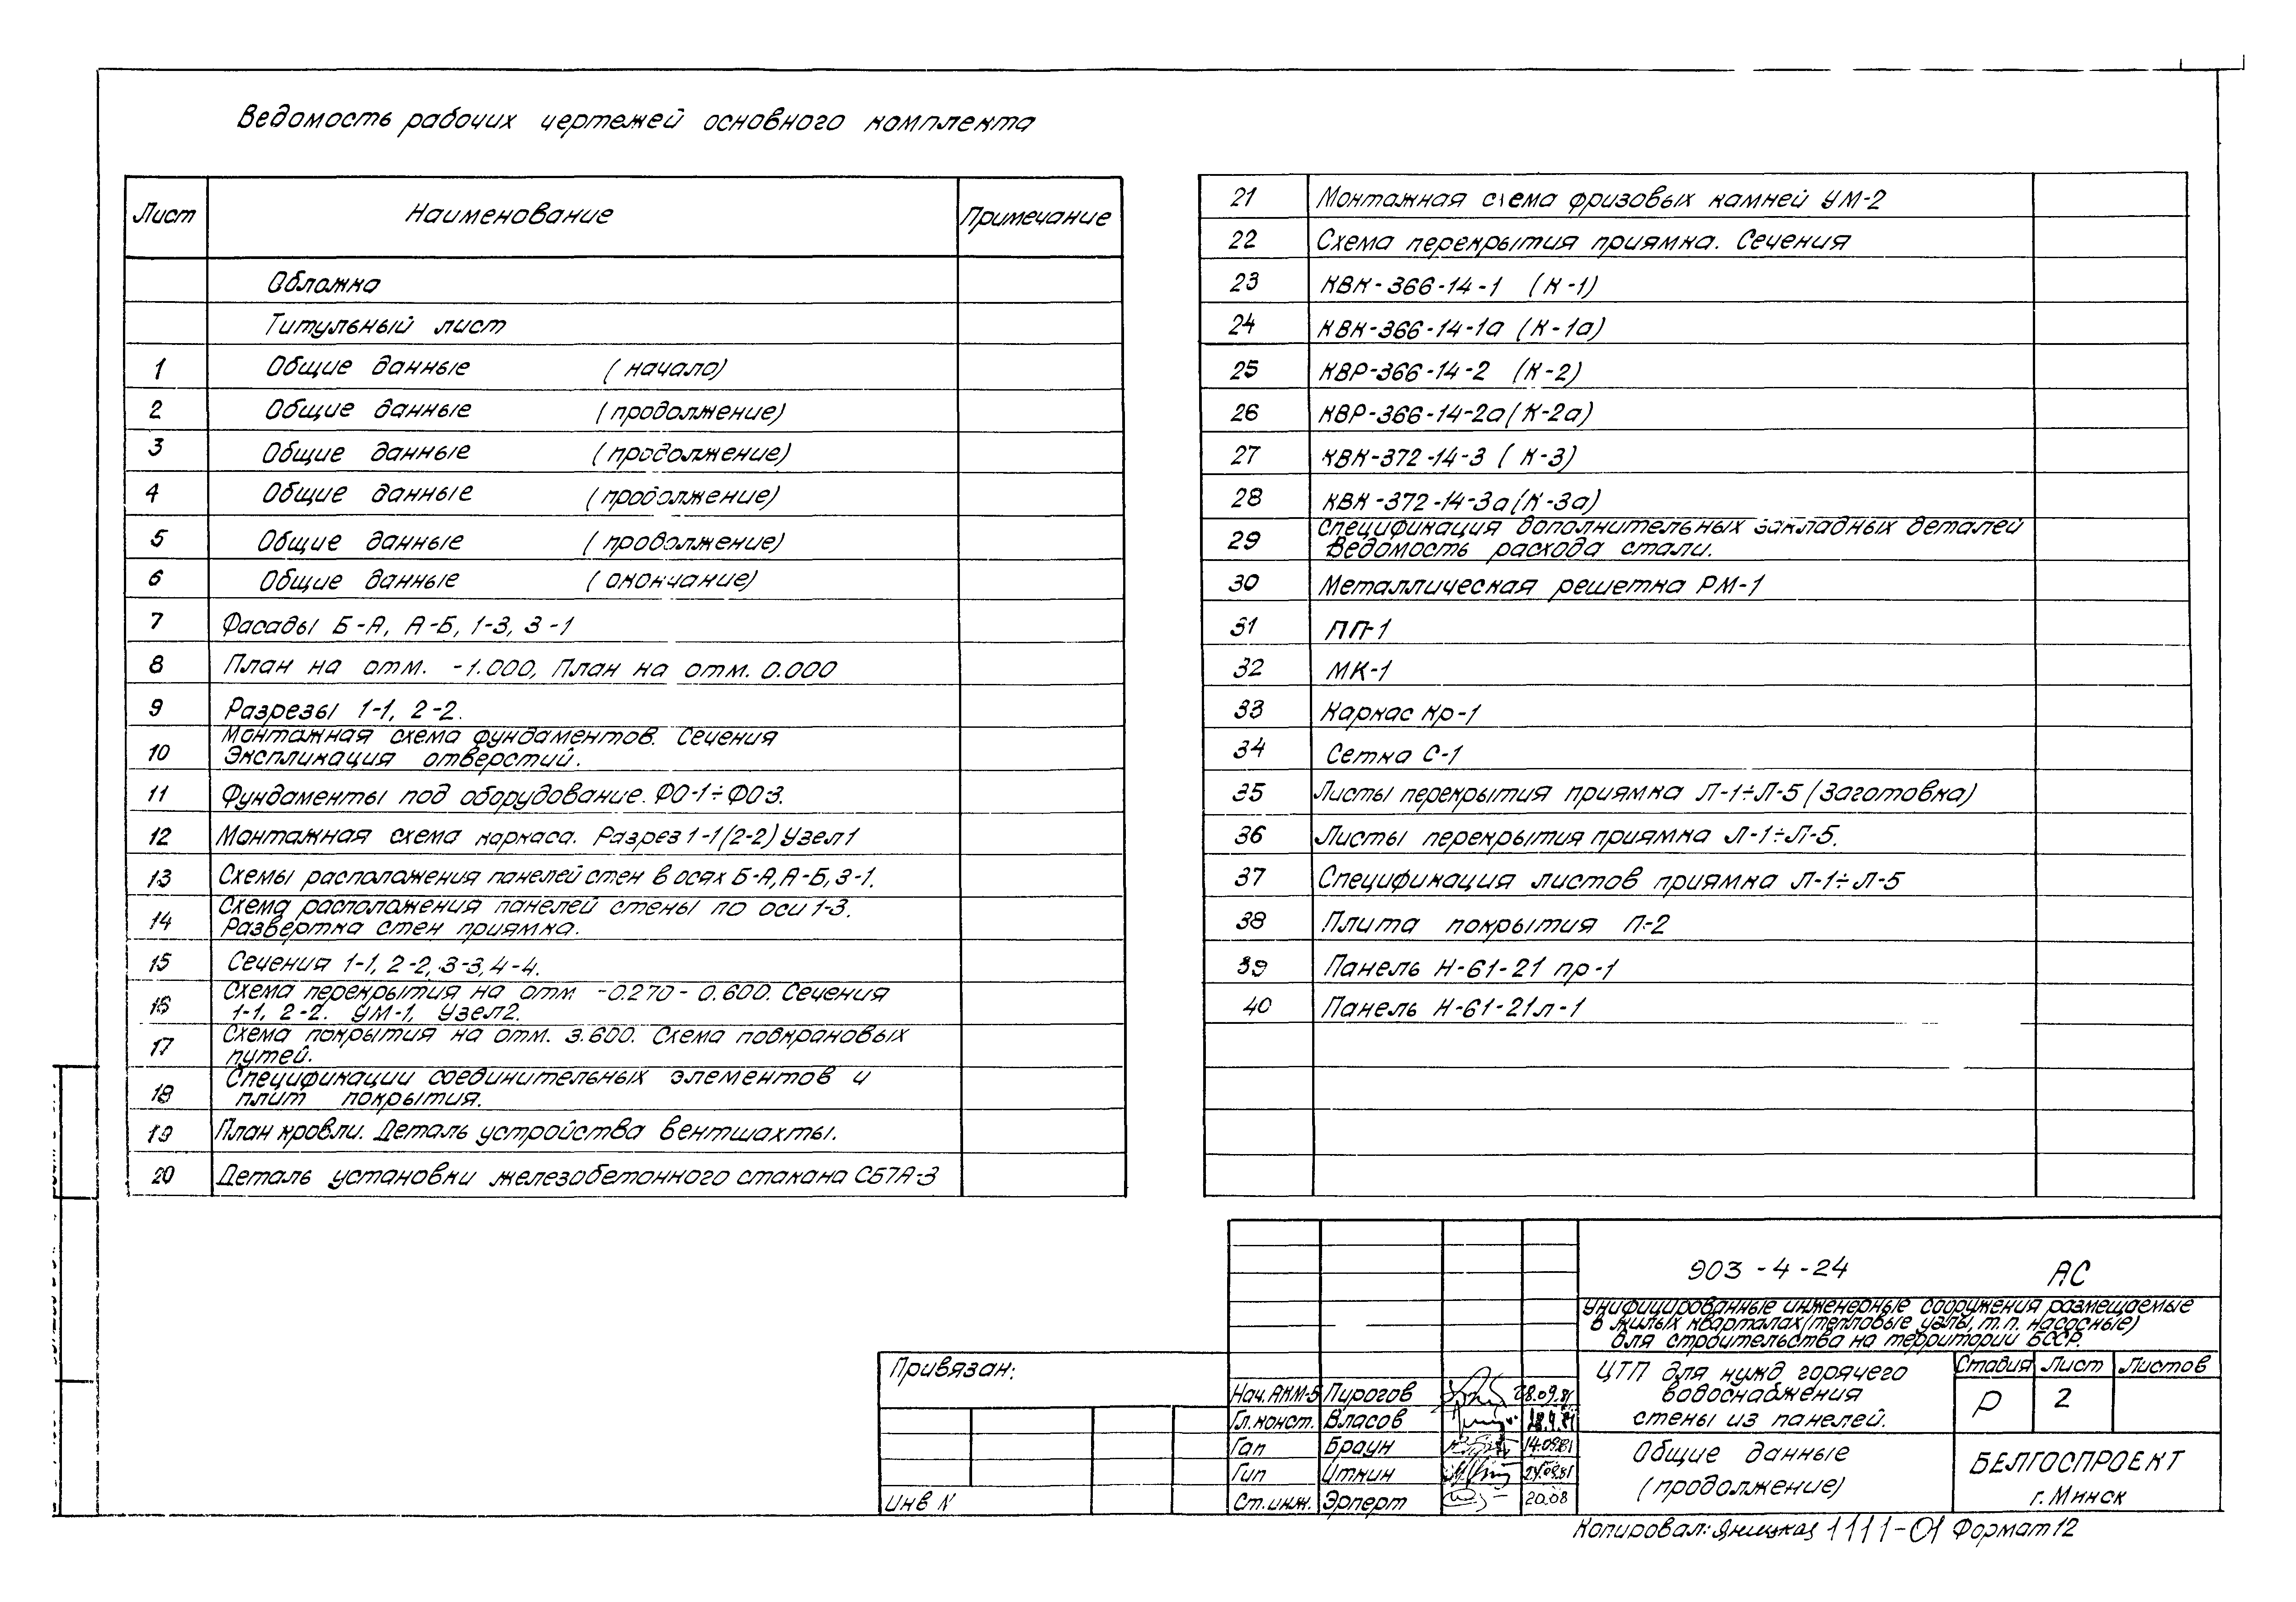 Ведомость рабочих чертежей основного комплекта
Лист Наименование Примечание
Обложка
Титульный лист
1 Общие данные (начало)
2 Общие данные (продолжение)
3 Общие данные (продолжение)
4 Общие данные (продолжение)
5 Общие данные (продолжение)
6 Общие данные (окончание)
7 Фасады Б-А, А-Б, 1-3, 3-1
8 План на отм. -1.000, План на отм. 0.000
9 Разрезы 1-1, 2-2.
10 Монтажная схема фундаментов. Сечения
Экспликация отверстий.
11 Фундаменты под оборудование. ФО-1÷ФО3.
12 Монтажная схема каркаса. Разрез 1-1(2-2) Узел 1
13 Схемы расположения панелей стен в осях Б-А, А-Б, 3-1.
14 Схема расположения панелей стены по оси 1-3.
Развертка стен приямка.
15 Сечения 1-1, 2-2, 3-3, 4-4.
16 Схема перекрытия на отм -0.270 - 0.600. Сечения
1-1, 2-2. УМ-1, Узел 2.
17 Схема покрытия на отм. 3.600. Схема подкрановых
путей.
18 Спецификации соединительных элементов и
плит покрытия.
19 План кровли. Деталь устройства вентшахты.
20 Деталь установки железобетонного стакана СБ7А-3
21 Монтажная схема фризовых камней УМ-2
22 Схема перекрытия приямка. Сечения
23 КВК-366-14-1 (К-1)
24 КВК-366-14-1а (К-1а)
25 КВР-366-14-2 (К-2)
26 КВР-366-14-2а (К-2а)
27 КВК-372-14-3 (К-3)
28 КВК-372-14-3а (К-3а)
29 Спецификация дополнительных закладных деталей
Ведомость расхода стали.
30 Металлическая решетка РМ-1
31 ПП-1
32 МК-1
33 Каркас Кр-1
34 Сетка С-1
35 Листы перекрытия приямка Л-1÷Л-5 (Заготовка)
36 Листы перекрытия приямка Л-1÷Л-5.
37 Спецификация листов приямка Л-1÷Л-5
38 Плита покрытия П-2
39 Панель Н-61-21 пр-1
40 Панель Н-61-21л-1
903-4-24 АС
Унифицированные инженерные сооружения размещаемые
в жилых кварталах (тепловые узлы, т.п. насосные)
для строительства на территории БССР.
Привязан:
ЦТП для нужд горячего
водоснабжения
стены из панелей.
Стадия Лист Листов
Р 2
Нач. АКМ-5 Пирогов 28.09.81
Гл. конст. Власов
Гап Браун 14.09.81
Гип Иткин 24.09.81
Ст. инж. Эрперт 20.08
Общие данные
(продолжение)
БЕЛГОСПРОЕКТ
г. Минск
Инв N
Копировал: 1111-01 Формат 12